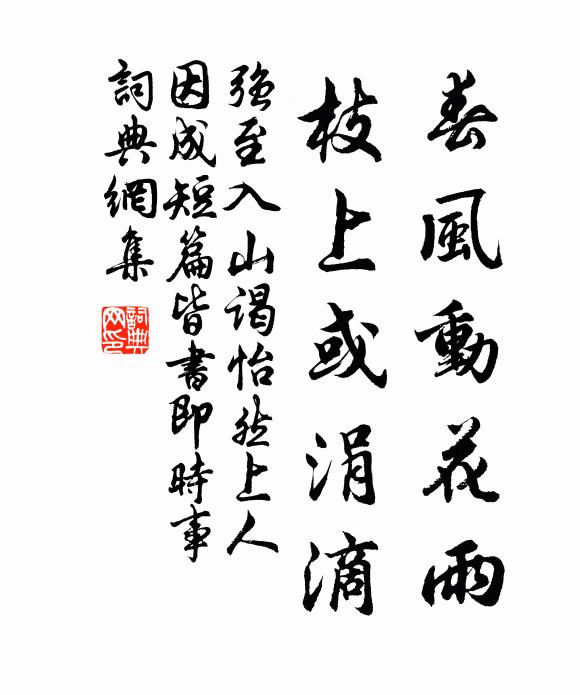 春風動花雨
枝上或涓滴
强至入山谒怡然上人
因成短篇皆書即時事
詞典網集
詞典网印